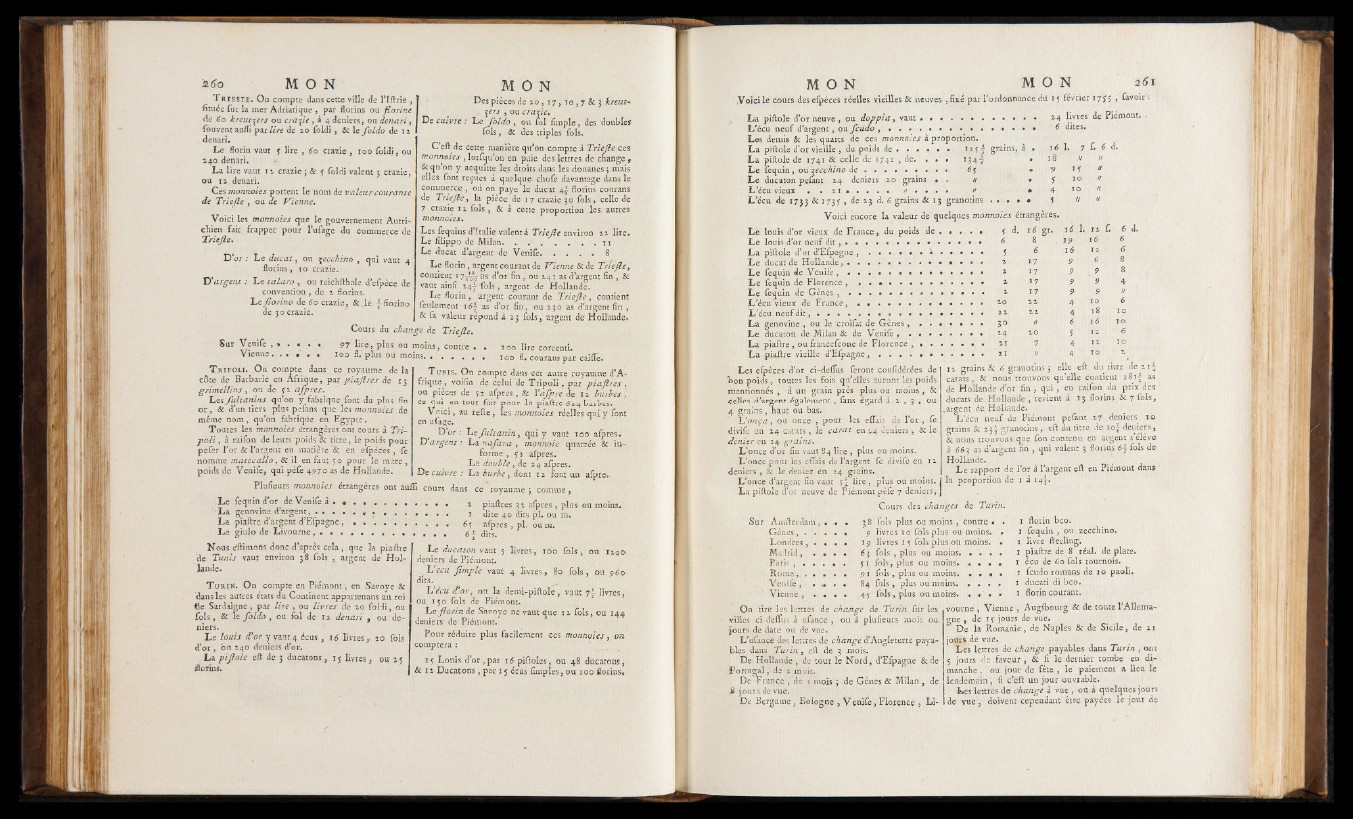 260 MON MON
TRIESTE. On compte dans cette ville de l'Iſtrie,
ſituée ſur la mer Adriatique, par florins ou fiorine
de 60 kreutzers ou crazie, à 4 deniers, ou denari,
ſouvent auſſi par lire de 20 ſoldi, & le ſoldo de 12
denari.
Le florin vaut 5 lire, 60 crazie, 100 ſoldi, ou
240 denari.
La lire vaut 12 crazie; & 5 ſoldi valent 3 crazie,
ou 12 denari.
Ces monnoies portent le nom de valeur courante
de Trieſte, ou de Vienne.
Voici les monnoies que le gouvernement Autri-
chien fait frapper pour l'uſage du commerce de
Trieſte.
D'or : Le ducat, ou zecchino, qui vaut 4
florins, 10 crazie.
D'argent : Le talaro, ou reichſthale d'eſpèce de
convention, de 2 florins.
Le fiorino de 60 crazie, & le ½ fiorino
de 30 crazie.
Des pièces de 20, 17, 10, 7 & 3 kreut-
zers, ou crazie.
De cuivre : Le ſoldo, ou ſol ſimple, des doubles
ſols, & des triples ſols.
C'eſt de cette manière qu'on compte à Trieſte ces
monnoies, lorſqu'on en paie des lettres de change,
& qu'on y acquitte les droits dans les douanes; mais
elles ſont reçues à quelque choſe davantage dans le
commerce, où on paye le ducat 4½ florins courans
de Trieſte, la pièce de 17 crazie 30 ſols, celle de
7 crazie 12 ſols, & à cette proportion les autres
monnoies.
Les ſequins d'Italie valent à Trieſte environ 22 lire.
Le filippo de Milan. . . . . . . . 11
Le ducat d'argent de Veniſe. . . . . 8
Le florin, argent courant de Vienne & de Trieſte,
contient as d'or fin, ou as d'argent fin, &
vaut ainſi 24½ ſols, argent de Hollande.
Le florin, argent courant de Trieſte, contient
ſeulement 16⅓ as d'or fin, ou 230 as d'argent fin,
& ſa valeur répond à 23 ſols, argent de Hollande.
Cours du change de Trieſte.
Sur Veniſe, . . . . . 97 lire, plus ou moins, contre . . 100 lire correnti.
Vienne. . . . . . 100 fl. plus ou moins. . . . . . . 100 fl. courans par caiſſe.
TRIPOLI. On compte dans ce royaume de la
côte de Barbarie en Afrique, par piaſtres de 13
grimellins, ou de 52 aſpres.
Les ſultanins qu'on y fabrique ſont du plus fin
or, & d'un tiers plus peſans que les monnoies de
même nom, qu'on fabrique en Egypte.
Toutes les monnoies étrangères ont cours à Tri-
poli, à raiſon de leurs poids & titre, le poids pour
peſer l'or & l'argent en matière & en eſpèces, ſe
nomme metecallo, & il en faut 50 pour le marc,
poids de Veniſe, qui pèſe 4970 as de Hollande.
TUNIS. On compte dans cet autre royaume d'A-
frique, voiſin de celui de Tripoli, par piaſtres,
ou pièces de 52 aſpres, & l'aſpre de 12 burbes,
ce qui en tout fait pour la piaſtre 624 burbes.
Voici, au reſte, les monnoies réelles qui y ſont
en uſage.
D'or : Le ſultanin, qui y vaut 100 aſpres.
D'argent : La naſara, monnoie quarrée & in-
forme, 52 aſpres.
La double, de 24 aſpres.
De cuivre : La burbe, dont 12 font un aſpre.
Pluſieurs monnoies étrangères ont auſſi cours dans ce royaume; comme,
Le ſequin d'or de Veniſe à . . . . . . . . . . 2 piaſtres 32 aſpres, plus ou moins.
La genovine d'argent, . . . . . . . . . . . . 1 dite 40 dits pl. ou m.
La piaſtre d'argent d'Eſpagne, . . . . . . . . . 65 aſpres, pl. ou m.
Le giulo de Livourne, . . . . . . . . . . . . 6½ dits.
Nous eſtimons donc d'après cela, que la piaſtre
de Tunis vaut environ 38 ſols, argent de Hol-
lande.
TURIN. On compte en Piémont, en Savoye &
dans les autres états du Continent appartenans au roi
de Sardaigne, par lire, ou livres de 20 ſoldi, ou
ſols, & le ſoldo, ou ſol de 12 denari, ou de-
niers.
Le louis d'or y vaut 4 écus, 16 livres, 20 ſols
d'or, ou 240 deniers d'or.
La piſtole eſt de 3 ducatons, 15 livres, ou 25
florins.
Le ducaton vaut 5 livres, 100 ſols, ou 1200
deniers de Piémont.
L'écu ſimple vaut 4 livres, 80 ſols, ou 960
dits.
L'écu d'or, ou la demi-piſtole, vaut 7½ livres,
ou 150 ſols de Piémont.
Le florin de Savoye ne vaut que 12 ſols, ou 144
deniers de Piémont.
Pour réduire plus facilement ces monnoies, on
comptera :
15 Louis d'or, par 16 piſtoles, ou 48 ducatons,
& 12 Ducatons, par 15 écus ſimples, ou 100 florins.
MON MON 261
Voici le cours des eſpèces réelles vieilles & neuves, fixé par l'ordonnance du 15 février 1755, ſavoir :
La piſtole d'or neuve, ou doppia, vaut . . . . . . . . . . . . 24 livres de Piémont.
L'écu neuf d'argent, ou ſcudo, . . . . . . . . . . . . . . . 6 dites.
Les demis & les quarts de ces monnoies à proportion.
La piſtole d'or vieille, du poids de . . . . . . . 125¾ grains, à . 16 l. 7 ſ. 6 d.
La piſtole de 1741 & celle de 1742, de. . . . 134½ . 18 〃 〃
Le ſequin, ou zecchino de . . . . . . . . . 65 . 9 15 〃
Le ducaton peſant 24 deniers 20 grains . . 〃 . 5 10 〃
L'écu vieux . . 21 . . . . . 〃 . . . . . 〃 . 4 10 〃
L'écu de 1733 & 1735, de 23 d. 6 grains & 13 granotins . . . . . 5 〃 〃
Voici encore la valeur de quelques monnoies étrangères.
Le louis d'or vieux de France, du poids de . . . . . 5 d. 16 gr. 16 l. 12 ſ. 6 d.
Le louis d'or neuf dit, . . . . . . . . . . . . . . 6 8 19 16 6
La piſtole d'or d'Eſpagne, . . . . . . . . . . . . 5 6 16 12 6
Le ducat de Hollande, . . . . . . . . . . . . . . 2 17 9 6 8
Le ſequin de Veniſe, . . . . . . . . . . . . . . 2 17 9 9 8
Le ſequin de Florence, . . . . . . . . . . . . . 2 17 9 9 4
Le ſequin de Gènes, . . . . . . . . . . . . . . 2 17 9 9 〃
L'écu vieux de France, . . . . . . . . . . . . . 20 22 4 10 6
L'écu neuf dit, . . . . . . . . . . . . . . . . . 22 22 4 18 10
La genovine, ou le croiſat de Gènes, . . . . . . . . 30 〃 6 16 10
Le ducaton de Milan & de Veniſe, . . . . . . . . . 24 20 5 12 6
La piaſtre, ou franceſcone de Florence, . . . . . . . 21 7 4 12 10
La piaſtre vieille d'Eſpagne, . . . . . . . . . . . 21 〃 4 10 2
Les eſpèces d'or ci-deſſus ſeront conſidérées de
bon poids, toutes les fois qu'elles auront les poids
mentionnés, à un grain près plus ou moins, &
celles d'argent également, ſans égard à 2, 3, ou
4 grains, haut ou bas.
L'onça, ou once, pour les eſſais de l'or, ſe
diviſe en 24 carats, le carat en 24 deniers, & le
denier en 24 grains.
L'once d'or fin vaut 84 lire, plus ou moins.
L'once pour les eſſais de l'argent ſe diviſe en 12
deniers, & le denier en 24 grains.
L'once d'argent fin vaut lire, plus ou moins.
La piſtole d'or neuve de Piémont pèſe 7 deniers,
12 grains & 6 granotins; elle eſt du titre de
carats, & nous trouvons qu'elle contient as
de Hollande d'or fin, qui, en raiſon du prix des
ducats de Hollande, revient à 13 florins & 7 ſols,
argent de Hollande.
L'écu neuf de Piémont peſant 27 deniers 10
grains & granotins, eſt du titre de deniers,
& nous trouvons que ſon contenu en argent s'élève
à as d'argent fin, qui valent 3 florins ſols de
Hollande.
Le rapport de l'or à l'argent eſt en Piémont dans
la proportion de 1 à
Cours des changes de Turin.
Sur Amſterdam, . . . 38 ſols plus ou moins, contre . . 1 florin bco.
Gènes, . . . . . . 9 livres 10 ſols plus ou moins. . 1 ſequin, ou zecchino.
Londres, . . . . . 19 livres 15 ſols plus ou moins. . 1 livre ſterling.
Madrid, . . . . . 63 ſols, plus ou moins. . . . . 1 piaſtre de 8 réal. de plate.
Paris, . . . . . . 51 ſols, plus ou moins. . . . . 1 écu de 60 ſols tournois.
Rome, . . . . . . 91 ſols, plus ou moins. . . . . 1 ſcudo romans de 10 paoli.
Veniſe, . . . . . 84 ſols, plus ou moins. . . . . 1 ducati di bco.
Vienne, . . . . . 45 ſols, plus ou moins. . . . . 1 florin courant.
On tire les lettres de change de Turin ſur les
villes ci-deſſus à uſance, ou à pluſieurs mois ou
jours de date ou de vue.
L'uſance des lettres de change d'Angleterre paya-
bles dans Turin, eſt de 3 mois.
De Hollande, de tout le Nord, d'Eſpagne & de
Portugal, de 2 mois.
De France, de 1 mois; de Gènes & Milan, de
8 jours de vue.
De Bergame, Bologne, Veniſe, Florence, Li-
vourne, Vienne, Augſbourg & de toute l'Allema-
gne, de 15 jours de vue.
De la Romanie, de Naples & de Sicile, de 21
jours de vue.
Les lettres de change payables dans Turin, ont
5 jours de faveur, & ſi le dernier tombe en di-
manche, ou jour de fête, le paiement a lieu le
lendemain, ſi c'eſt un jour ouvrable.
Les lettres de change à vue, ou à quelques jours
de vue, doivent cependant être payées le jour de